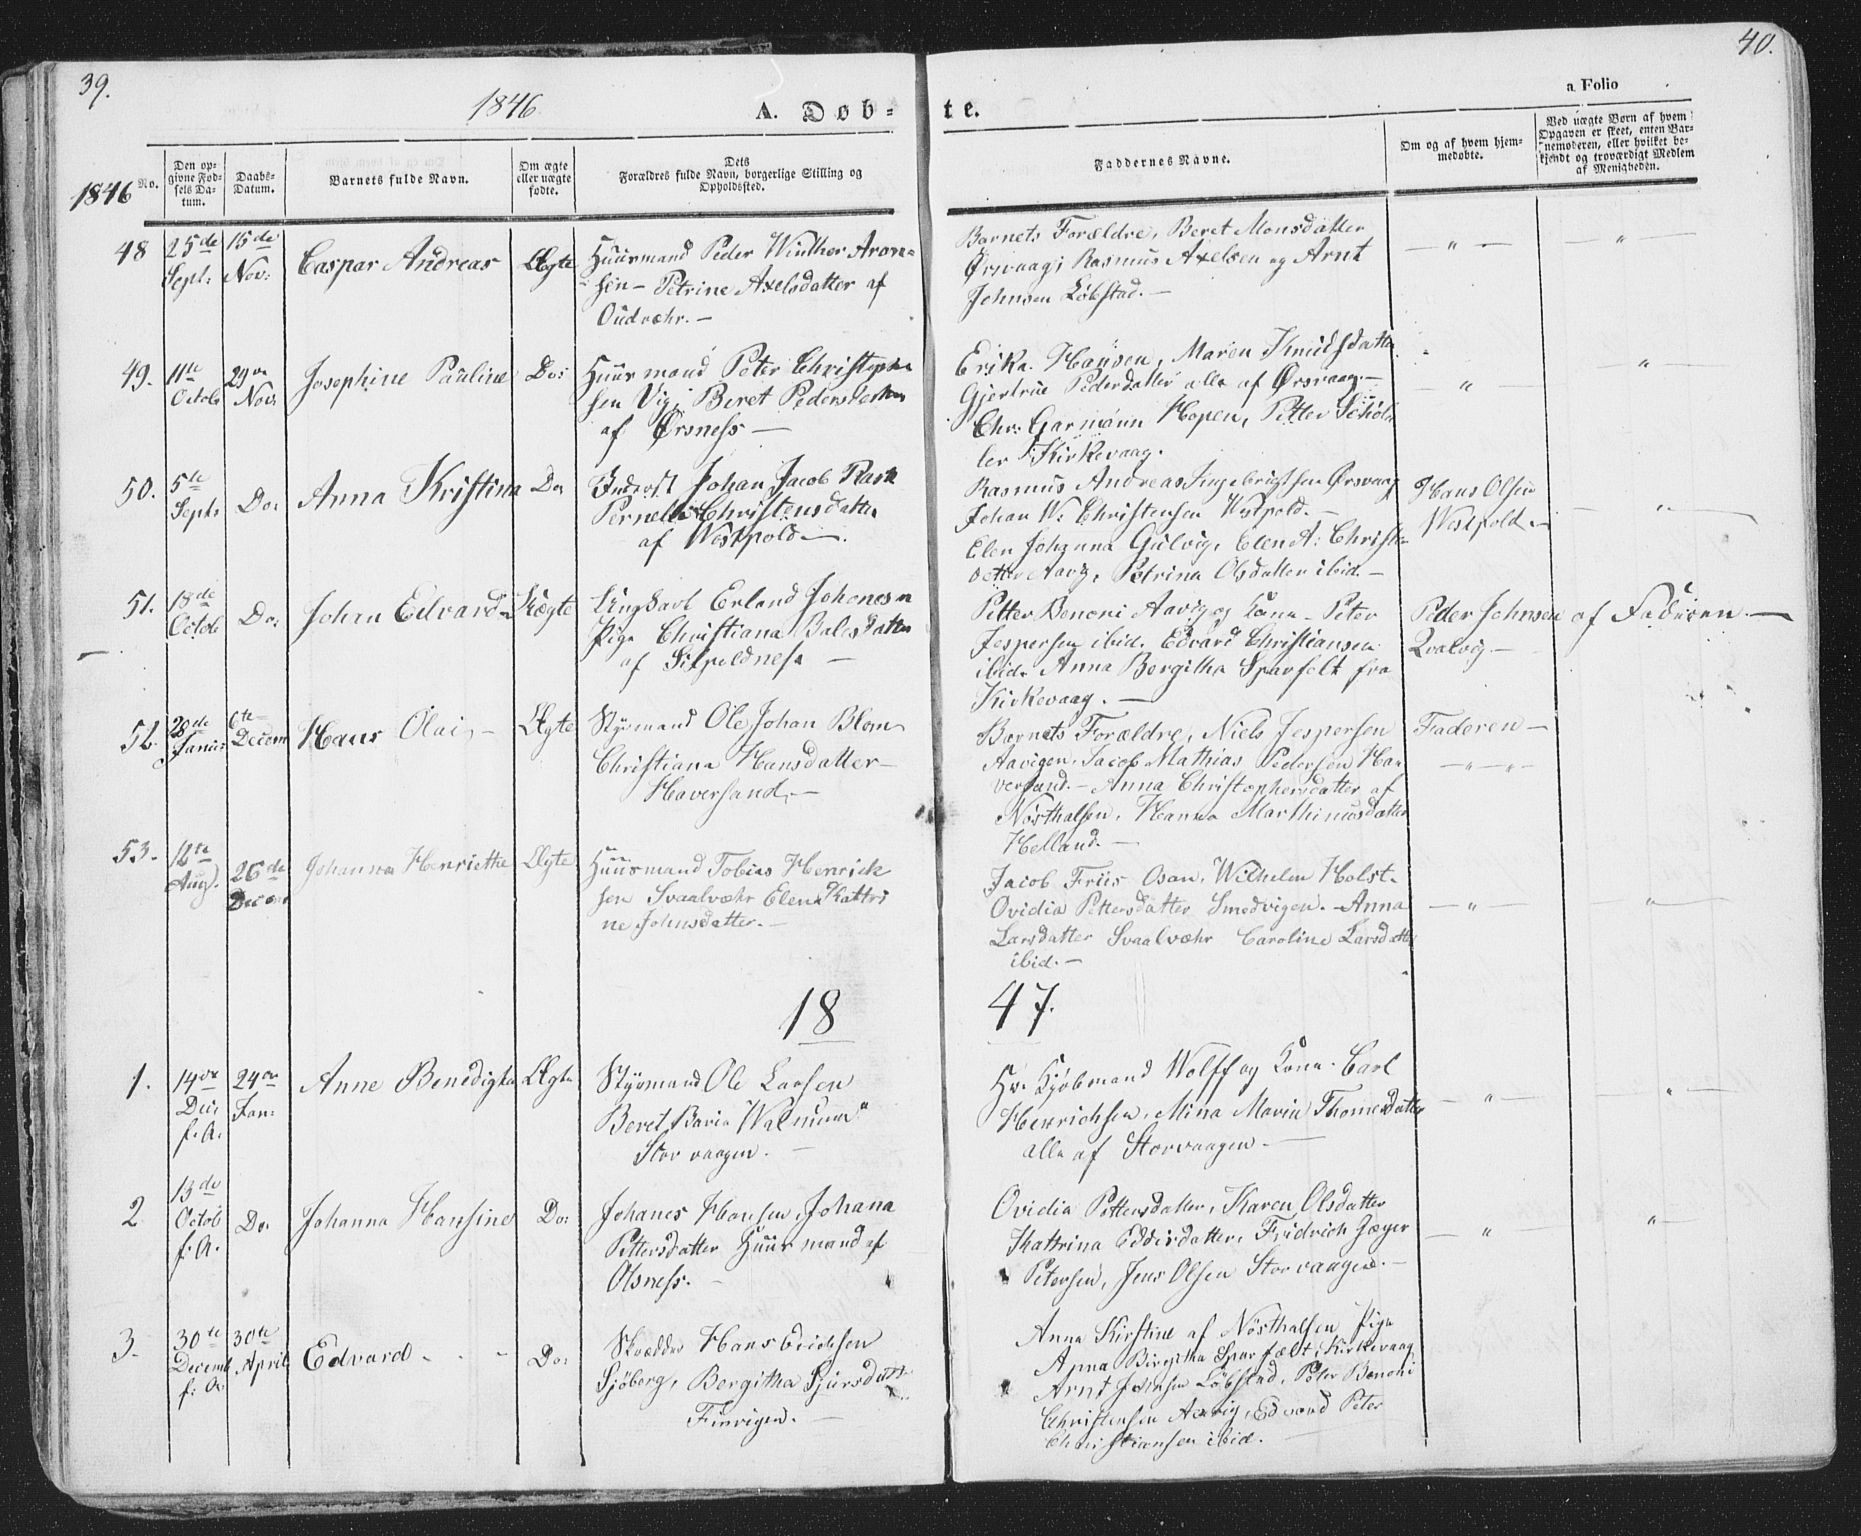 39.
40.
1846
A. Døb-
te.
a Folio
1846
No.
Den op-
givne Fød-
sels Da-
tum.
Daabs-
Datum.
Barnets fulde Navn.
Om ægte
eller uægte
fødte.
Dets
Forældres fulde Navn, borgerlige Stilling og
Opholdssted.
Faddernes Navne.
Om og af hvem hjem-
medøbte.
Ved uægte Børn af hvem
Opgaven er skeet, enten Bar-
nemoderen, eller hvilket be-
kjendt og troværdigt Medlem
af Menigheden.
48
25de
Sept:
15de
Nov:
Caspar Andreas
Ægte
Huusmand Peder Winther Aron-
sen - Petrine Axelsdatter af
Oudvæhr. -
Barnets Forældre, Beret Monsdatter
Ørsvaag, Rasmus Axelsen og Arnt
Johnsen Løbstad. -
- " -
- " -
49.
11te
Octob
29de
Nov:
Josephine Pauline
Do:
Huusmand Peter Christoph
sen Vig, Beret Pedersdatter
af Ørsness -
Erika Hansen, Maren Knudsdatter
Gjertrue Pedersdatter alle af Ørsvaag. -
Chr: Garmann Hopen, Petter Schøl
ler Kirkevaag.
- "
- " -
50.
5te
Sept:
Do:
Anna Kristina
Do:
Inderst Johan Jacob Rask
Pernelle Christensdatter
af Westpold -.
Rasmus Andreas Ingebrigtsen Ørsvaag
Johan W: Christensen Westpold. -
Elen Johanna Gulvig, Elen A: Christen
datter Aavig, Petrina Olsdatter ibid. -
Hans Olsen
Westpold -
- " -
51.
18de
Octob
Do:
Johan Edvard -
Uægte
Ungkarl Erland Johnesen
Pige Christiana Balsdatter
af Sispoldness -
Petter Benoni Aavig og Kone - Peter
Jespersen ibid. Edvard Christiansen
ibid. Anna Bergitha Sparfelt fra
Kirkevaag. -
Peder Johnsen
Qvalvig -
af Faderen. -
52.
28de
Junii
6te
Decem
Hans Olai, -
Ægte
Styrmand Ole Johan Blom
Christiana Hansdatter -
Haversand, -
Barnets Forældre, Niels Jespersen
Aavigen, Jacob Mathias Pedersen Ha
versand. - Anna Christophersdatter af
Nösthalsen, Hanna Marthinusdatter
Helland. -
Faderen -
- " - " -
53.
12te
Aug.
26de
Decem
Johanna Henriette
Ægte
Huusmand Tobias Henrick
sen Svaalvæhr Elen Kattri
ne Johnsdatter. -
Jacob Friis Osan, Wilhelm Holst.
Ovidia Pettersdatter Smedvigen. - Anna
Larsdatter Svaalvæhr Caroline Larsdatter
ibid. -
- " -
- " -
18
47.
1.
14de
Dec:
f: A.
24de
Jan:
Anne Benedigta
Ægte
Styrmand Ole Larsen
Beret Maria Walnum
Storvaagen. -
Hr. Kjöbmand Wolff og Kone. Carl
Henrichsen, Mina Maria Thomesdatter
alle af Storvaagen. -
- " -
- " -
2
13de
Octob
f: A.
Do:
Johanna Hansine
Do:
Johanes Hansen, Johana
Pettersdatter Huusmand af
Olsness. -
Ovidia Pettersdatter, Karen Olsdatter
Kattrina Eddisdatter, Fridrich Jæger
Petersen, Jens Olsen Storvaagen. -
- " -
- " -
3.
30te
Decemb
f: A.
30te
April
Edvard - - -
Do:
Skrædder Hans Erichsen
Sjöberg, Bergitha Sjursdatter
Finvigen. -
Anna Kirstine af Nösthalsen Pige
Anna Birgitha Sparfælt, Kirkevaag
Arnt Johnsen Löbstad, Peter Benoni
Christensen Aavig, Edvard Peter
Christiansen ibid.